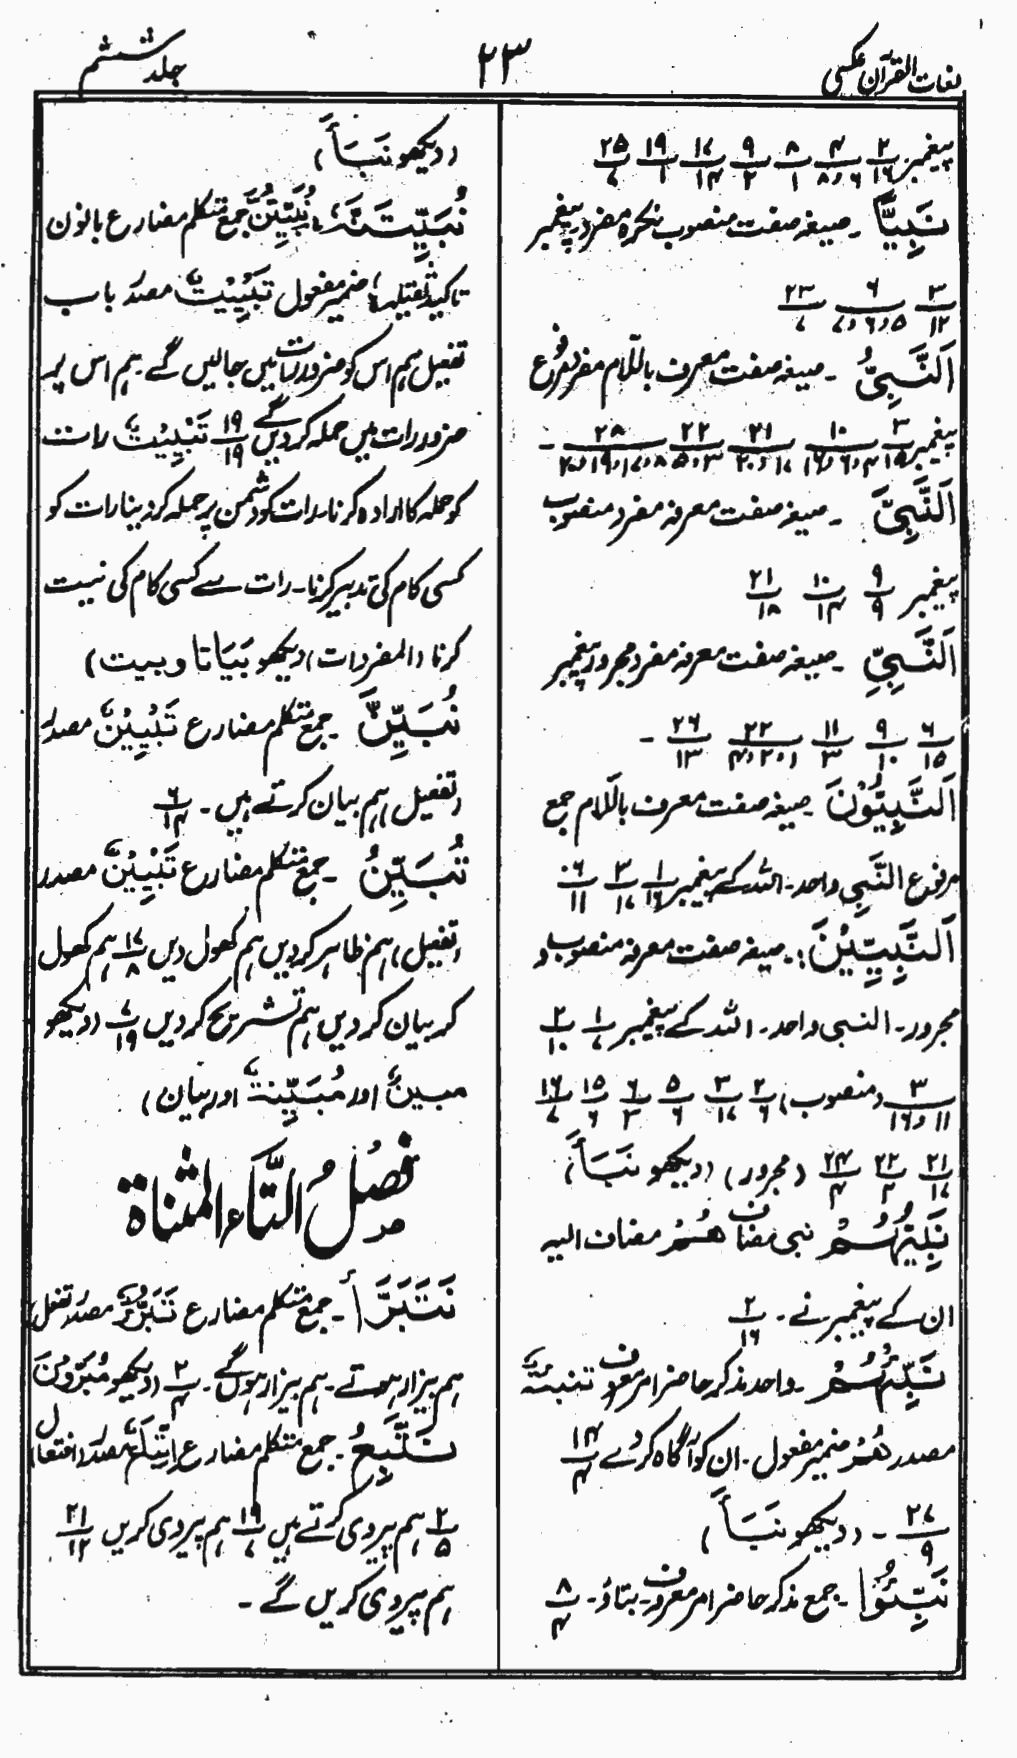 لغات القرآن عکسی
۲۳
جلد ششم
پیغمبر ۲/۱۶ ۴/۶،۸ ۸/۱ ۹/۲ ۱۷/۱۴ ۱۹/۱ ۲۵/۷
نَبِیًّا ۔ صیغہ صفت منصوب نکرہ مفرد، پیغمبر
۳/۱۲ ۶/۵،۶،۷ ۲۳/۷
اَلنَّبِیُّ ۔ صیغہ صفت معرف باللام مفرد مرفوع
پیغمبر ۳/۱۵ ۱۰/۴،۶،۱۶ ۲۱/۱۷،۲۰ ۲۲/۳،۵ ۲۸/۸،۱۷،۱۹،۲۰ ۔
اَلنَّبِیَّ ۔ صیغہ صفت معرفہ مفرد منصوب
پیغمبر ۹/۹ ۱۰/۱۴ ۲۱/۱۸
اَلنَّبِیِّ ۔ صیغہ صفت معرفہ مفرد مجرور پیغمبر
۶/۱۵ ۹/۱۰ ۱۱/۳ ۲۲/۱،۲،۴ ۲۶/۱۳ ۔
اَلنَّبِیُّوْنَ ۔ صیغہ صفت معرف باللام جمع
مرفوع النَّبِی واحد۔ اللہ کے پیغمبر ۱/۱۶ ۳/۱۷ ۰۶/۱۱
اَلنَّبِیِّیْنَ :۔ صیغہ صفت معرفہ منصوب و
مجرور۔ النبی واحد۔ اللہ کے پیغمبر ۱/۷ ۲/۱۰
۳/۱۱،۱۶ (منصوب) ۲/۶ ۳/۱۷ ۵/۶ ۶/۳ ۱۵/۶ ۱۶/۷
۲۱/۱۷ ۲۲/۲ ۲۴/۴ (مجرور) (دیکھو نَبَأَ)
نَبِیُّهُمْ نبی مضاف هُمْ مضاف الیہ
ان کے پیغمبر نے ۔ ۲/۱۶
نَبِّئْهُمْ ۔ واحد مذکر حاضر امر معروف تنبئۃ
مصدر هُمْ ضمیر مفعول ۔ ان کو آگاہ کر دے ۱۴/۴
۲۷/۹ ۔ (دیکھو نَبَأَ)
نَبِّئُوْا ۔ جمع مذکر حاضر امر معروف۔ بتاؤ ۔ ۸/۴
(دیکھو نَبَأَ)
نُبَیِّتَنَّہٗ ؛ نُبَیِّتَنَّ جمع متکلم مضارع بانون
تاکید ثقیلہ؛ ہٗ ضمیر مفعول تَبْیِیْتٌ مصدر باب
تفعیل ہم اس کو ضرور رات میں جالیں گے ۔ ہم اس پر
ضرور رات میں حملہ کر دیں گے ۱۹/۱۹ تَبْیِیْتٌ رات
کو حملہ کا ارادہ کرنا۔ رات کو دشمن پر حملہ کر دینا رات کو
کسی کام کی تدبیر کرنا ۔ رات سے کسی کام کی نیت
کرنا (المفردات) دیکھو بَیَاتًا وبیت)
نُبَیِّنَ ۔ جمع متکلم مضارع تَبْیِیْنٌ مصدر
(تفعیل) ہم بیان کرتے ہیں ۔ ۶/۱۴
نُبَیِّنُ ۔ جمع متکلم مضارع تَبْیِیْنٌ مصدر
(تفعیل) ہم ظاہر کر دیں ہم کھول دیں ۱۷/۸ ہم کھول
کر بیان کر دیں ہم تشریح کر دیں ۷/۱۹ (دیکھو
مبینٌ اور مُبَیِّنَۃٌ اور بیان)
فصلُ التَّاءِ المثناۃ
نَتَبَرَّأَ ۔ جمع متکلم مضارع تَبَرُّؤٌ مصدر تفعل)
ہم بیزار ہوتے ۔ ہم بیزار ہوں گے ۔ ۲/۴ (دیکھو مُبَرَّءُوْنَ
نَتَّبِعُ ۔ جمع متکلم مضارع اِتِّبَاعٌ مصدر (افتعال)
۲/۵ ہم پیروی کرتے ہیں ۱۹/۷ ہم پیروی کریں ۲۱/۱۲
ہم پیروی کریں گے ۔